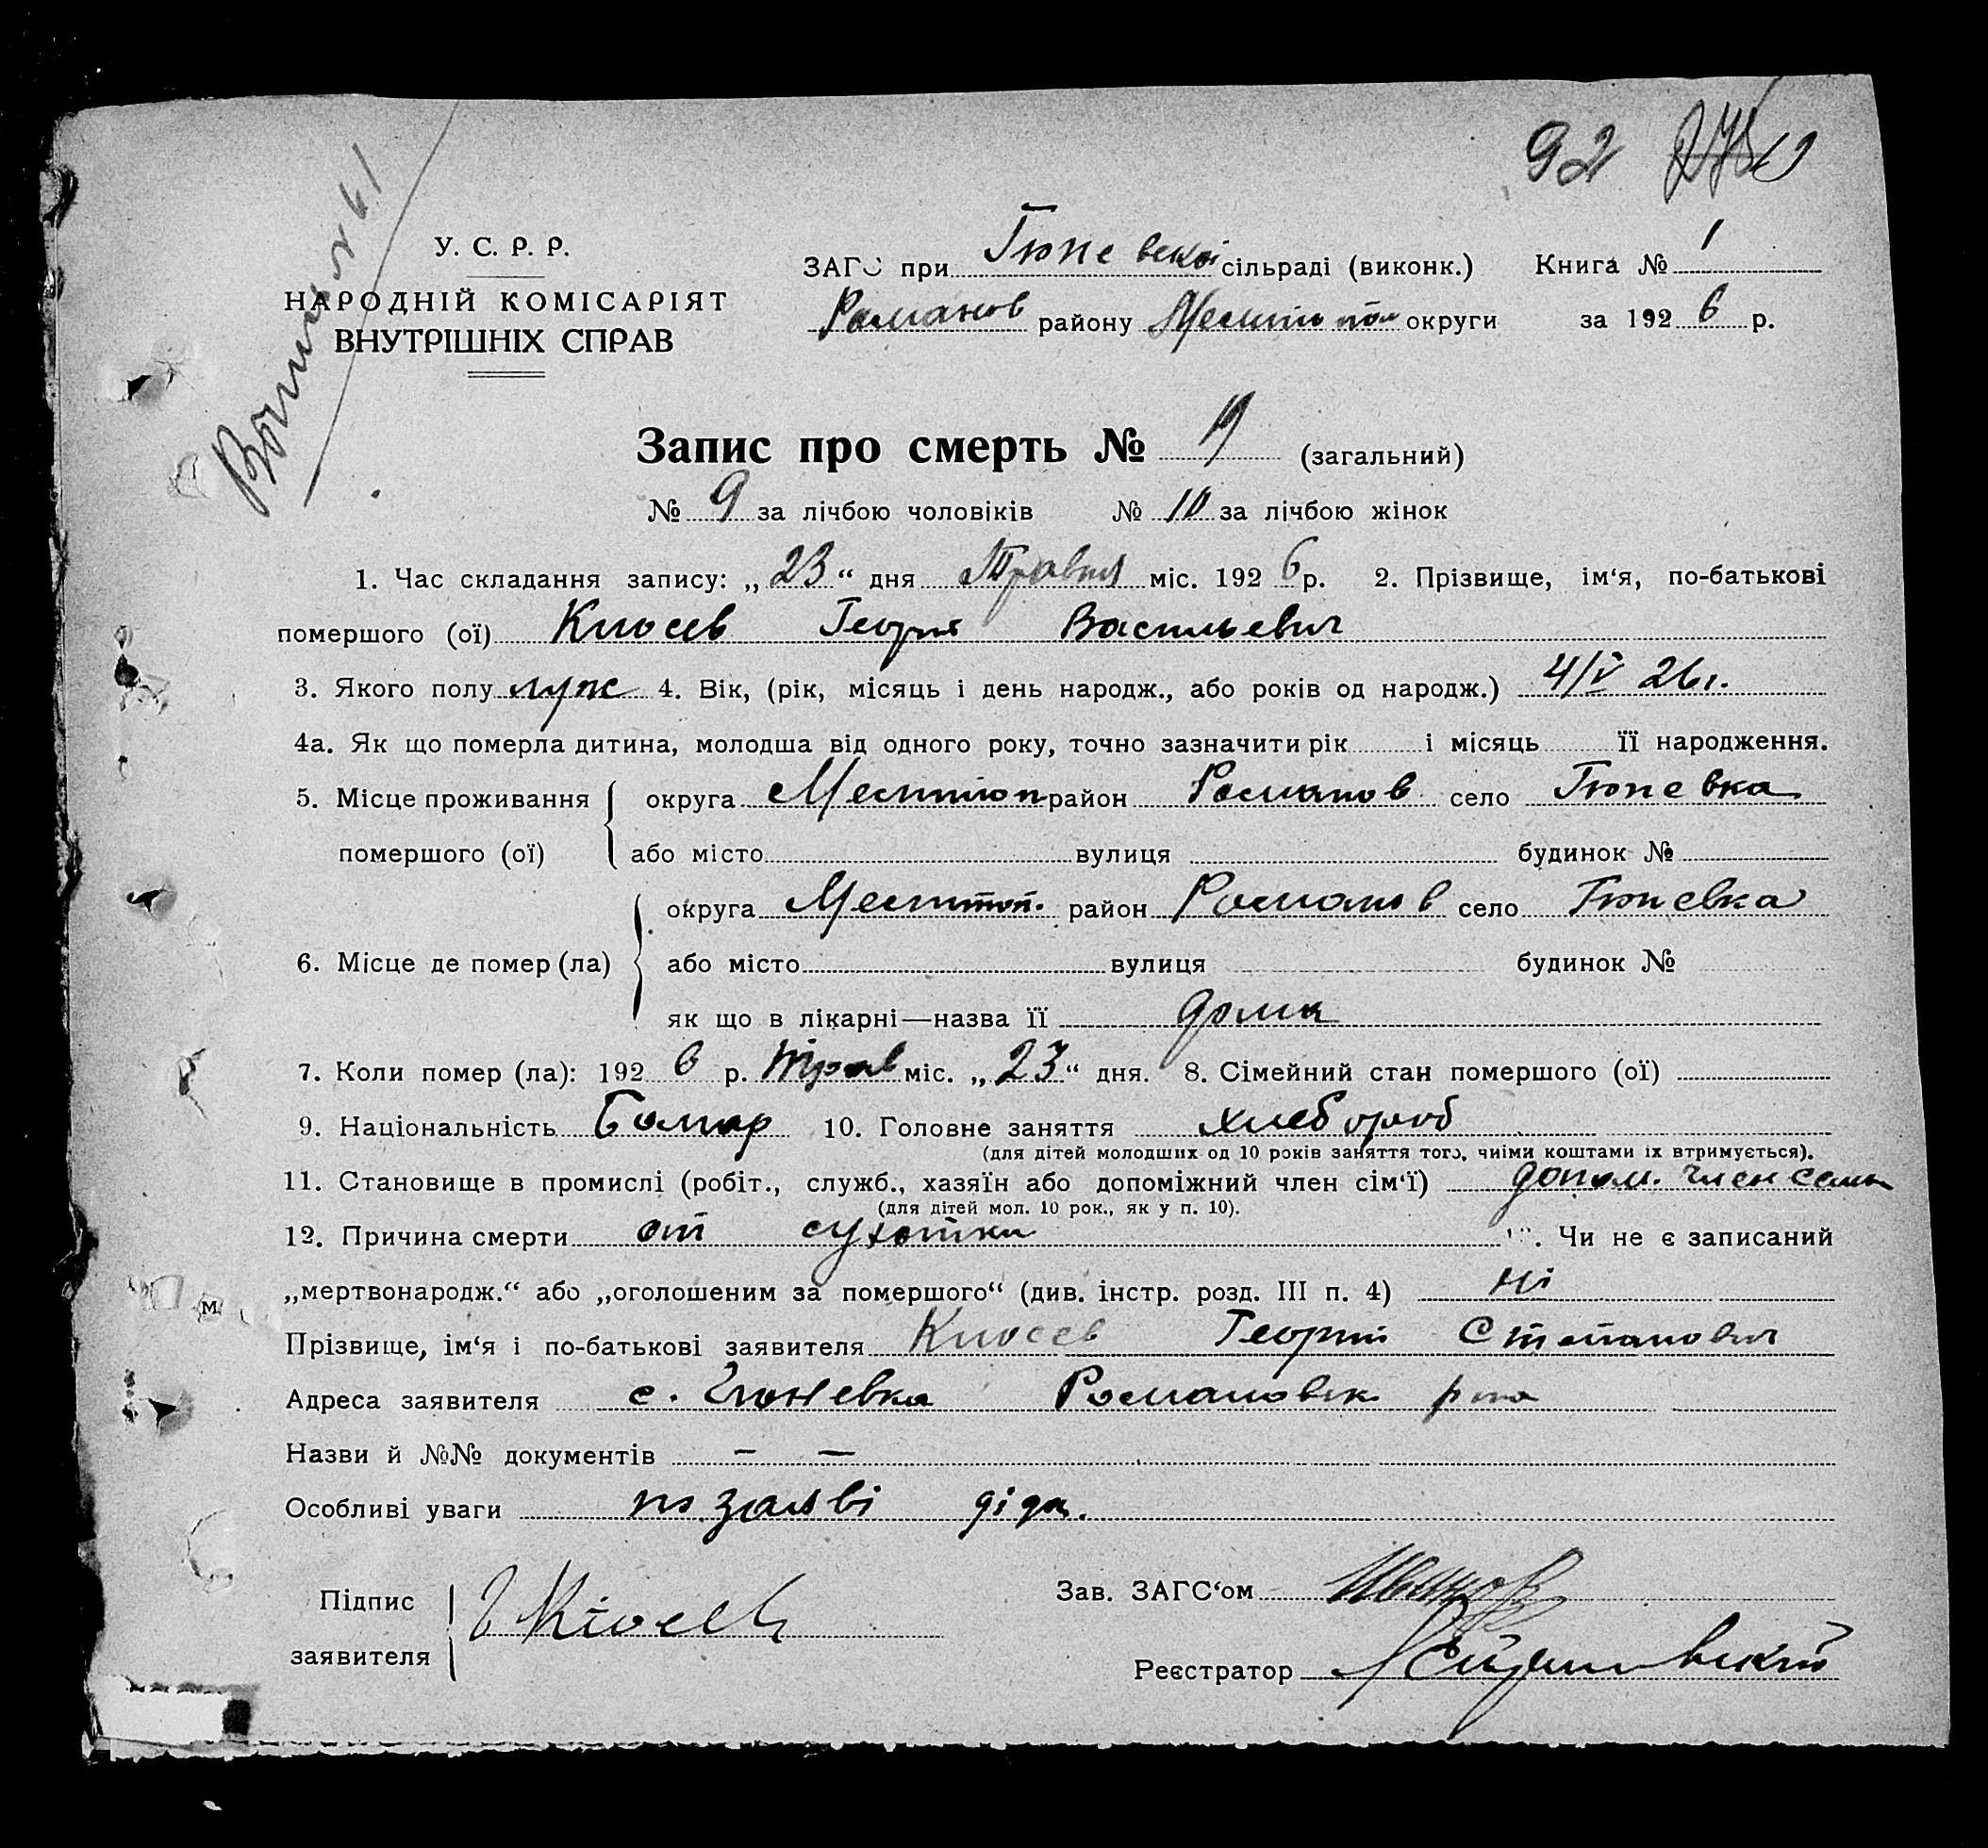 92
У. С. Р. Р.
НАРОДНІЙ КОМІСАРІЯТ
ВНУТРІШНІХ СПРАВ
ЗАГС при Гюневскі сільраді (виконк.) Книга № 1
Романов району округи за 1926 р.
Запис про смерть № 19 (загальний)
№ 9 за лічбою чоловіків № 10 за лічбою жінок
1. Час складання запису: „23“ дня Травня міс. 1926 р. 2. Прізвище, ім‘я, по-батькові
помершого (ої) Киосев Георгий Васильевич
3. Якого полу муж 4. Вік, (рік, місяць і день народж., або років од народж.) 4/V 26 г.
4а. Як що померла дитина, молодша від одного року, точно зазначити рік і місяць її народження.
5. Місце проживання округа Мелитоп район Романов село Гюневка
помершого (ої) або місто вулиця будинок №
округа Мелитоп. район Романов село Гюневка
6. Місце де помер (ла) або місто вулиця будинок №
як що в лікарні—назва її дома
7. Коли помер (ла): 1926 р. Трав міс. „23“ дня. 8. Сімейний стан помершого (ої)
9. Національність Болгар 10. Головне заняття хлебороб
(для дітей молодших од 10 років заняття того, чиїми коштами їх втримується).
11. Становище в промислі (робіт., служб., хазяїн або допоміжний член сім‘ї) допом. член семьи
(для дітей мол. 10 рок., як у п. 10).
12. Причина смерти от сухотки 13. Чи не є записаний
„мертвонародж.“ або „оголошеним за помершого“ (див. інстр. розд. III п. 4) ні
Прізвище, ім‘я і по-батькові заявителя Киосев Георгий Степанович
Адреса заявителя с. Гюневка Романовск р-на
Назви й №№ документів — —
Особливі уваги по заяві діда.
Підпис
заявителя Г Кіосевъ
Зав. ЗАГС‘ом Иванов
Реєстратор